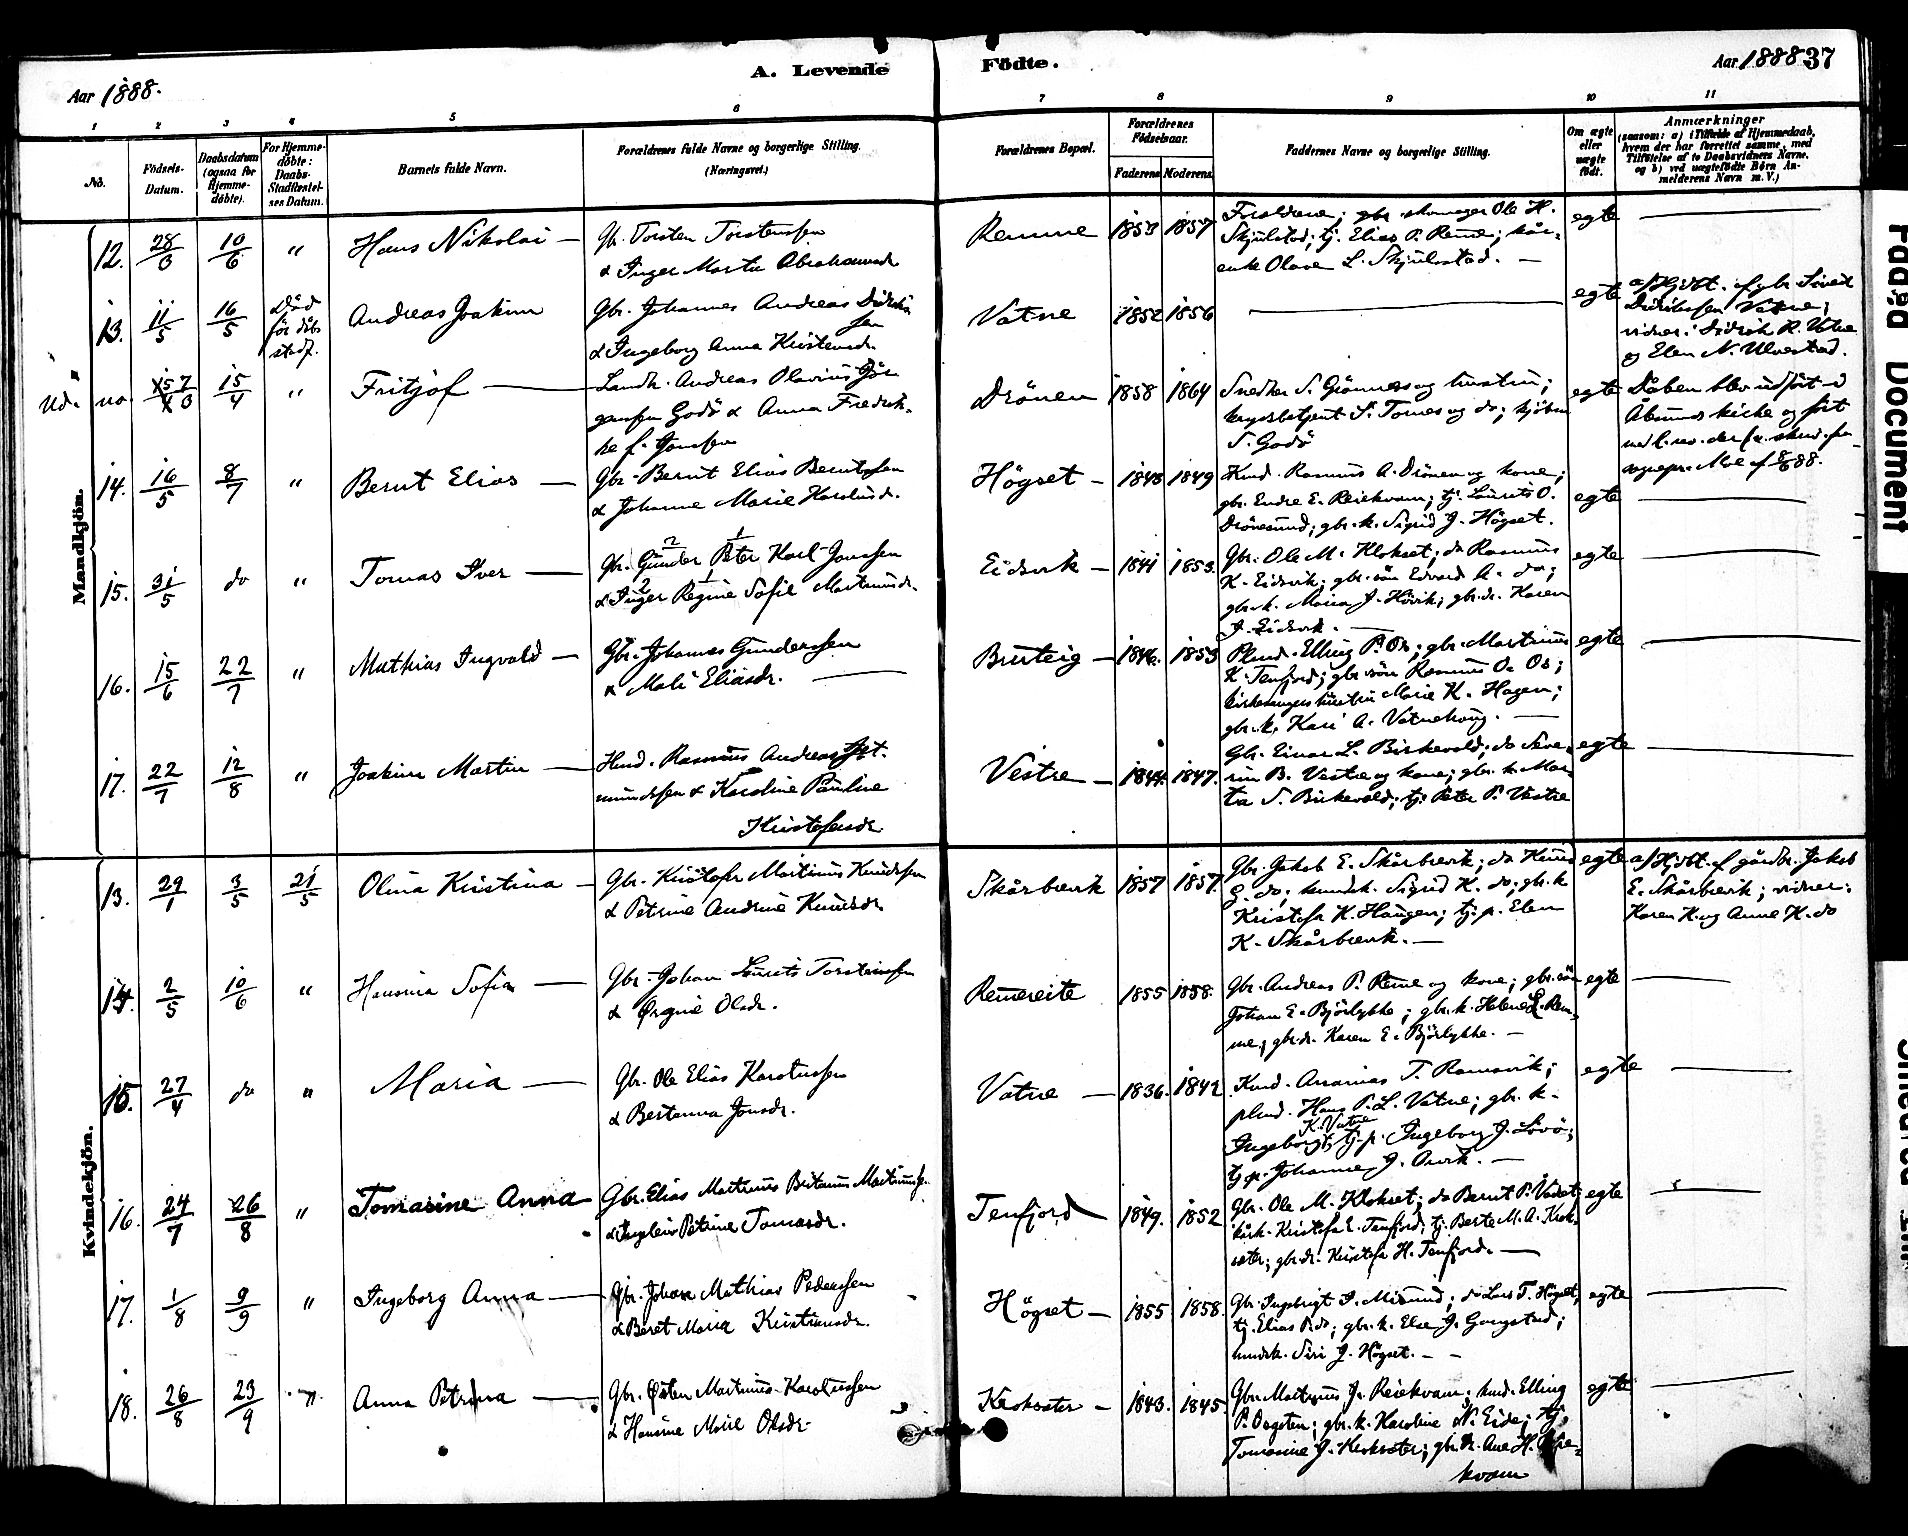 Aar 1888. A. Levende Födte. Aar 1888 37
1 2 3 4 5 6 7 8 9 10 11
No. Födsels-Datum. Daabsdatum (ogsaa for Hjemme-döbte). For Hjemme-döbte: Daabs-Stadfæstel-ses Datum. Barnets fulde Navn. Forældrenes fulde Navne og borgerlige Stilling. (Næringsvei.) Forældrenes Bopæl. Forældrenes Födselsaar. Faderens Moderens. Faddernes Navne og borgerlige Stilling. Om ægte eller uægte födt. Anmærkninger (saasom: a) i Tilfælde af Hjemmedaab, hvem der har forrettet samme, med Tilföielse af to Daabsvidners Navne, og b) ved uægtefödte Börn An-melderens Navn m. V.)
Mandkjön.
12. 10/6 " Hans Nikolai —
Gbr. Torsten Torstenssen
& Inger Marta Abrahamsdr.
Remme 1853 1857
Forældrene; gbr. Ole H.
Skjulstad; tj. Elias P. Reme;
enke Olave L. Skjulstad. —
egte —
13. 11/5 16/5 Död för dåbs stadf.
Andreas Joakim
Gbr. Johannes Andreas Didrik
sen
& Ingeborg Anna Kristensdr.
Vatne 1852 1856 — egte
a/ Hjdbt. af gbr. Sivert
Didriksen Vatne;
vidner: Didrik R. Vatne
og Elen N. Ulvestad.
Ud. no 15/4 " Fritjof —
Landh. Andreas Olavius Jör
gensen Godö & Anna Fredrik-
ke f. Jonsen
Drönen 1858 1864
Snedker S. Grönnes og hustru;
S. Tornes og do;
S. Godö
egte
Dåben blev udfört i
kirke og fört
14. 16/5 8/7 " Bernt Elias —
Gbr. Bernt Elias Berntssen
& Johanne Marie Karolusd.
Högset — 1848 1849
Kmd. Rasmus A. Drönen og kone;
gbr. Endre E. Reiekvam; tj. Laurits O.
Drönesund; gbr. k. Sigrid J. Högset.
egte —
15. 31/5 do " Tomas Iver —
Gbr. Gunder Peter Karl Jonssen
& Inger Regine Sofie Martinusdr.
Eidsvik — 1841 1853.
Gbr. Ole M. Klokset; do Rasmus
K. Eidsvik; gbr. sön Edvard A. do;
gbr. k. Maria J. Hövik; gbr. dr. Karen
J. Eidsvik. —
egte —
16. 15/6 22/7 " Mathias Ingvald —
Gbr. Johannes Gunderssen
& Mali Eliasdr. —
Bruteig — 1846. 1853
Plmd. Elling P. Os; gbr. Martinus
K. Tenfjord; gbr. sön Rasmus O. Os;
kirkesangers hustru Marie K. Hagen;
gbr. k. Kari A. Vatnehaug. —
egte —
17. 22/7 12/8 " Joakim Martin —
Hmd. Rasmus Andreas Aat.
mundssen & Karoline Pauline
Kristofersdr.
Vestre — 1844. 1847.
Gbr. Einar L. Birkevold; do Seve-
rin B. Vestre og kone; gbr. k. Mar-
ta S. Birkevold; tj. Peter P. Vestre
egte —
Kvindekjön.
13. 29/1 3/5 21/5 Olina Kristina —
Gbr. Kristofer Martinus Knudssen
& Petrine Andrine Knudsdr.
Skårbrevik 1857 1857.
Gbr. Jakob E. Skårbrevik; do Knud
E. do; Sigrid K. do; gbr. k.
Kristofa K. Haugen; tj. p. Elen
K. Skårbrevik. —
egte
a/ Hjdbt. af gårdbr. Jakob
E. Skårbrevik; vidner:
Karen K. og Anne K. do
14. 2/5 10/6 " Hansina Sofia —
Gbr. Johan Laurits Torstenssen
& Ørgine Olsdr.
Remereite 1855 1858.
Gbr. Andreas P. Reme og kone; gbr. sön
Johan E. Björlykke; gbr. k. Helene L. Rem-
me; gbr. dr. Karen E. Björlykke. —
egte —
15. 27/4 do " Maria —
Gbr. Ole Elias Karolussen
& Bertanna Jonsdr.
Vatne — 1836. 1842
Kmd. Ananias T. Ramsvik;
plmd. Hans P. L. Vatne; gbr. k.
K. Vatne
Ingeborg; tj. p. Ingeborg J. Lövö;
tj. p. Johanne J. —
egte —
16. 24/7 26/8 " Tomasine Anna
Gbr. Elias Martinus Britanus Martinuss.
& Petrine Tomasdr.
Tenfjord 1849. 1852
Gbr. Ole M. Klokset; do Bernt P. Vadset
Kristofa E. Tenfjord; tj. Berte M. A. Krok-
sæter; gbr. dr. Kristofa H. Tenfjord. —
egte —
17. 1/8 9/9 " Ingeborg Anna —
Gbr. Johan Mathias Pederssen
& Beret Maria Kristiansdr.
Högset — 1855 1858.
Gbr. Ingebrigt I. Misund; do Lars T. Högset;
tj. Elias P. do; gbr. k. Else J. Gangstad;
Siri J. Högset. — —
egte —
18. 26/8 23/9 " Anna Petrina —
Gbr. Østen Martinus Karolussen
& Hansine Marie Olsdr.
Kroksæter — 1843. 1845
Gbr. Martinus J. Reiekvam; hmd. Elling
P. ; gbr. k. Karoline N. Eide; tj.
Tomasine J. Kroksæter; gbr. dr. Ane H. Reie-
kvam
egte —